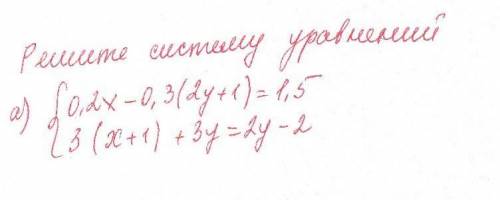 Решите систему уравнений
а) { 0,2x - 0,3(2y+1) = 1,5
3(x+1) + 3y = 2y - 2